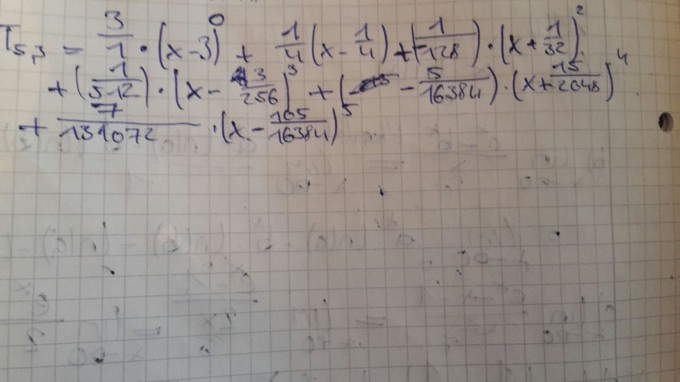 T₅,₃ = 3/1 · (x-3)⁰ + 1/4 (x - 1/4) + (1/-128) · (x + 1/32)²
+ (1/512) · (x - 3/256)³ + (- 5/16384) · (x + 15/2048)⁴
+ 7/131072 · (x - 105/16384)⁵